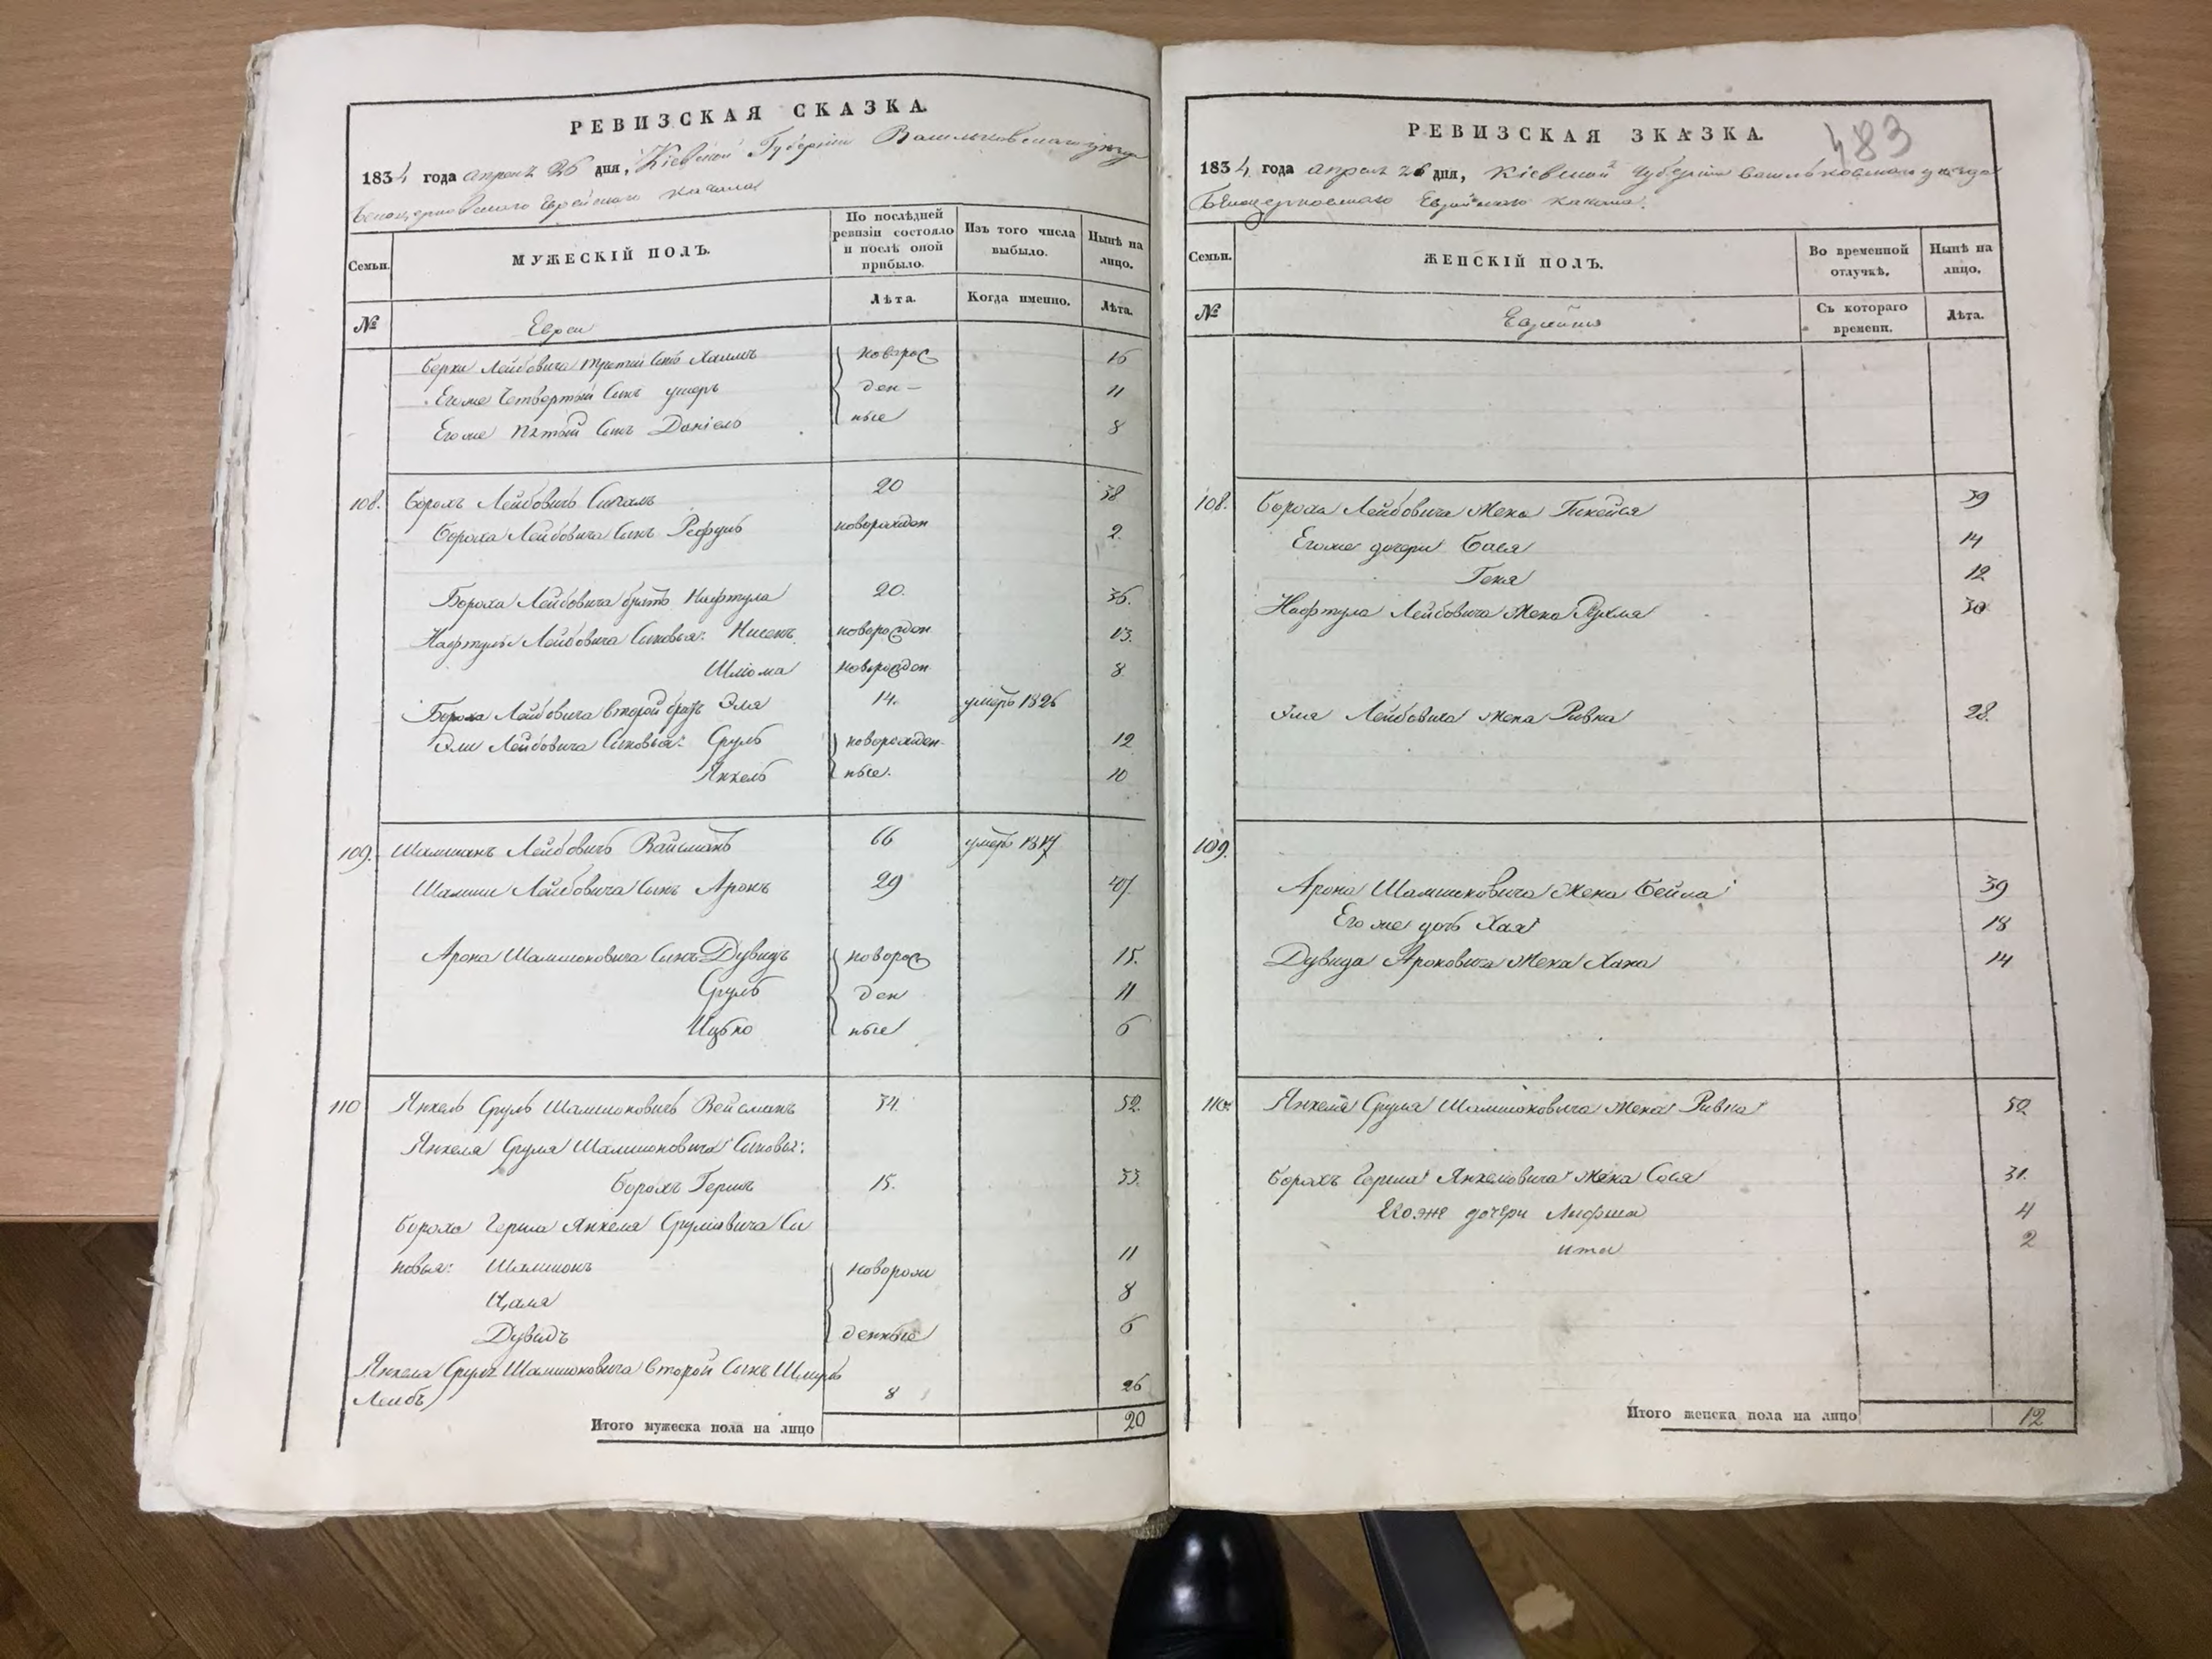 РЕВИЗСКАЯ СКАЗКА.
1834 года апреля 26 дня, Кіевской Губерніи Васильковскаго уезда
Белоцерковскаго Еврейскаго Кагала
Семьи.
МУЖЕСКІЙ ПОЛЪ.
По послѣдней ревизіи состояло и послѣ оной прибыло.
Изъ того числа выбыло.
Нынѣ на лицо.
№
Лѣта.
Когда именно.
Лѣта.
Евреи
Берка Лейбовича третій Сынъ Хаимъ новорож 16
Егоже Четвертый Сынъ ден- 11
Егоже Пятый Сынъ Даніель ные 8
108. Борохъ Лейбовичъ 20 38
Бороха Лейбовича Сынъ Рефуль новорожден 2.
Бороха Лейбовича братъ Нафтула 20. 36.
Нафтулы Лейбовича Сыновья: Нисенъ новорожден 13.
Шлюма новорожден 8
Бороха Лейбовича второй братъ Эля 14. умеръ 1826
Эли Лейбовича Сыновья: Сруль новорожден- 12
Янкель ные. 10
109. Шамшонъ Лейбовичъ Вайсманъ 66 умеръ 1817
Шамши Лейбовича Сынъ Аронъ 29 47.
Арона Шамшоновича Сынъ Дувидъ новорож 15.
Сруль ден 11
Ицько ные 6
110 Янкель Сруль Шамшоновичъ Вейсманъ 34. 52.
Янкеля Сруля Шамшоновича Сыновья:
Борохъ Гершъ 15. 33.
Бороха Герша Янкеля Срулювича Сы
новья: Шамшонъ новорож 11
Цаля 8
Дувидъ денные 6
Янкеля Сруля Шамшоновича Второй Сынъ Шмуль
Лейбъ 8 26
Итого мужеска пола на лицо 20
РЕВИЗСКАЯ ЗКАЗКА.
483
1834 года апреля 26 дня, Кіевской Губерніи Васильковскаго уезда
Белоцерковскаго Еврейскаго Кагала.
Семьи.
ЖЕНСКІЙ ПОЛЪ.
Во временной отлучкѣ.
Нынѣ на лицо.
№
Съ котораго времени.
Лѣта.
Еврейки
108. Бороха Лейбовича Жена 39
Егоже дочери Бася 14
Геня 12
Нафтула Лейбовича Жена Рухля 30
Эля Лейбовича жена Ривка 28.
109.
Арона Шамшоновича Жена Бейла 39
Егоже дочь Хая 18
Дувида Ароновича Жена Хана 14
110. Янкеля Сруля Шамшоновича Жена Ривка 50
Борохъ Герша Янкеловича Жена Сося 31.
Егоже дочери Лифша 4
Ита 2
Итого женска пола на лицо 12